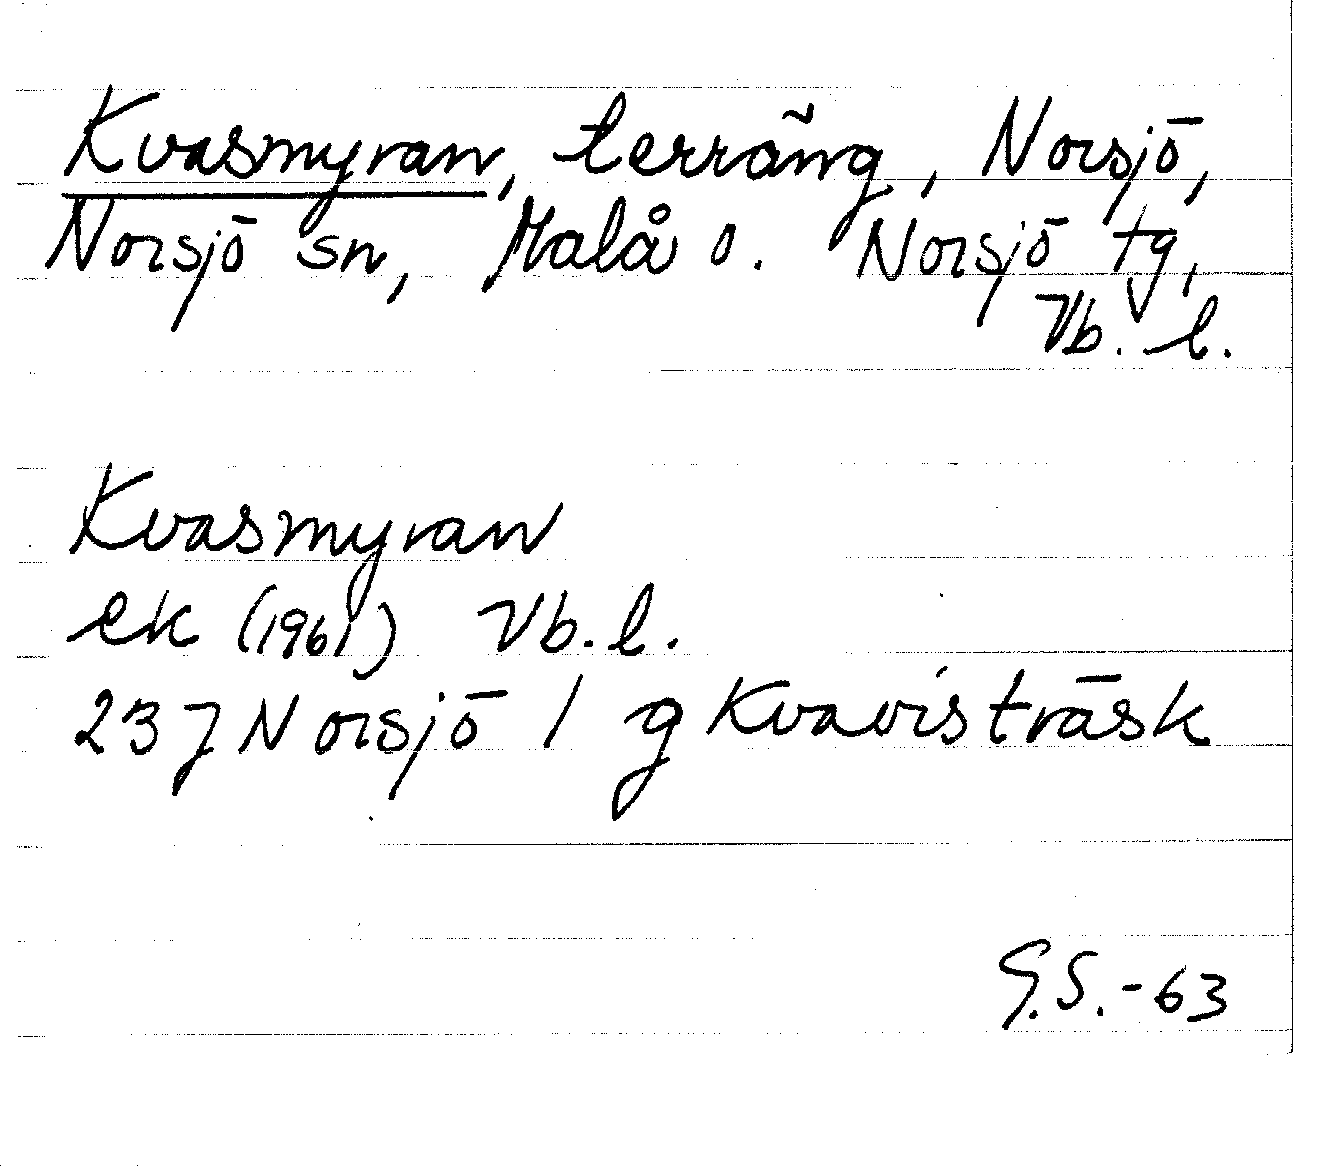 Kvasmyran, terräng, Norsjö,
Norsjö sn, Malå o. Norsjö tg,
Vb. l.
Kvasmyran
ek (1961) Vb. l.
23 J Norsjö / g Kvavisträsk
G.S.-63